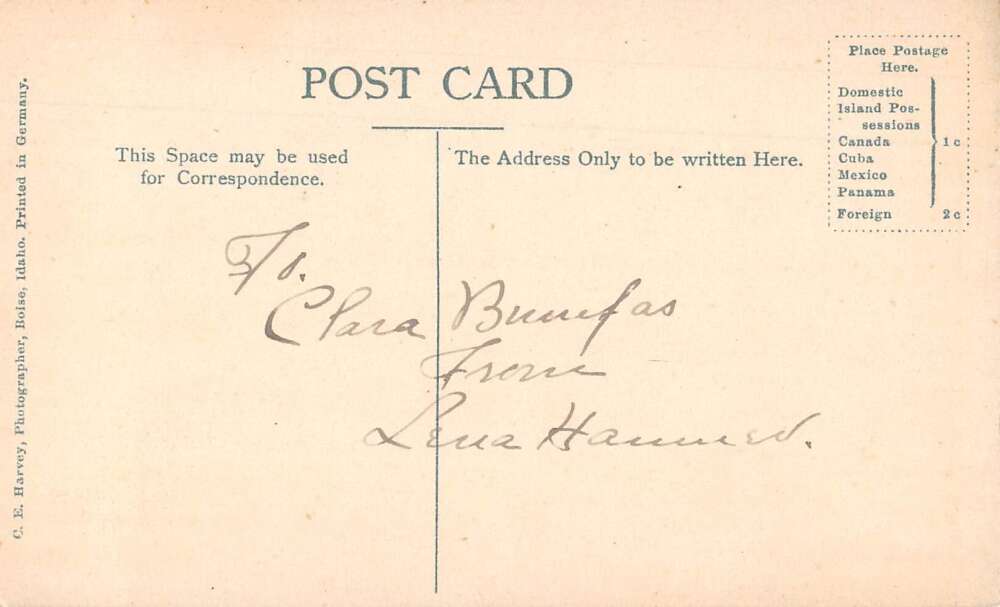 POST CARD
Place Postage
Here.
Domestic
Island Pos-
sessions
Canada
Cuba
Mexico
Panama
1c
Foreign 2c
This Space may be used
for Correspondence.
The Address Only to be written Here.
To.
Clara
From
Lena
C. E. Harvey, Photographer, Boise, Idaho. Printed in Germany.